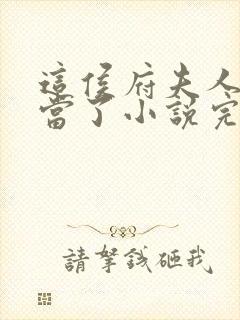 這侯府夫人
當了小說完
請拏錢砸我